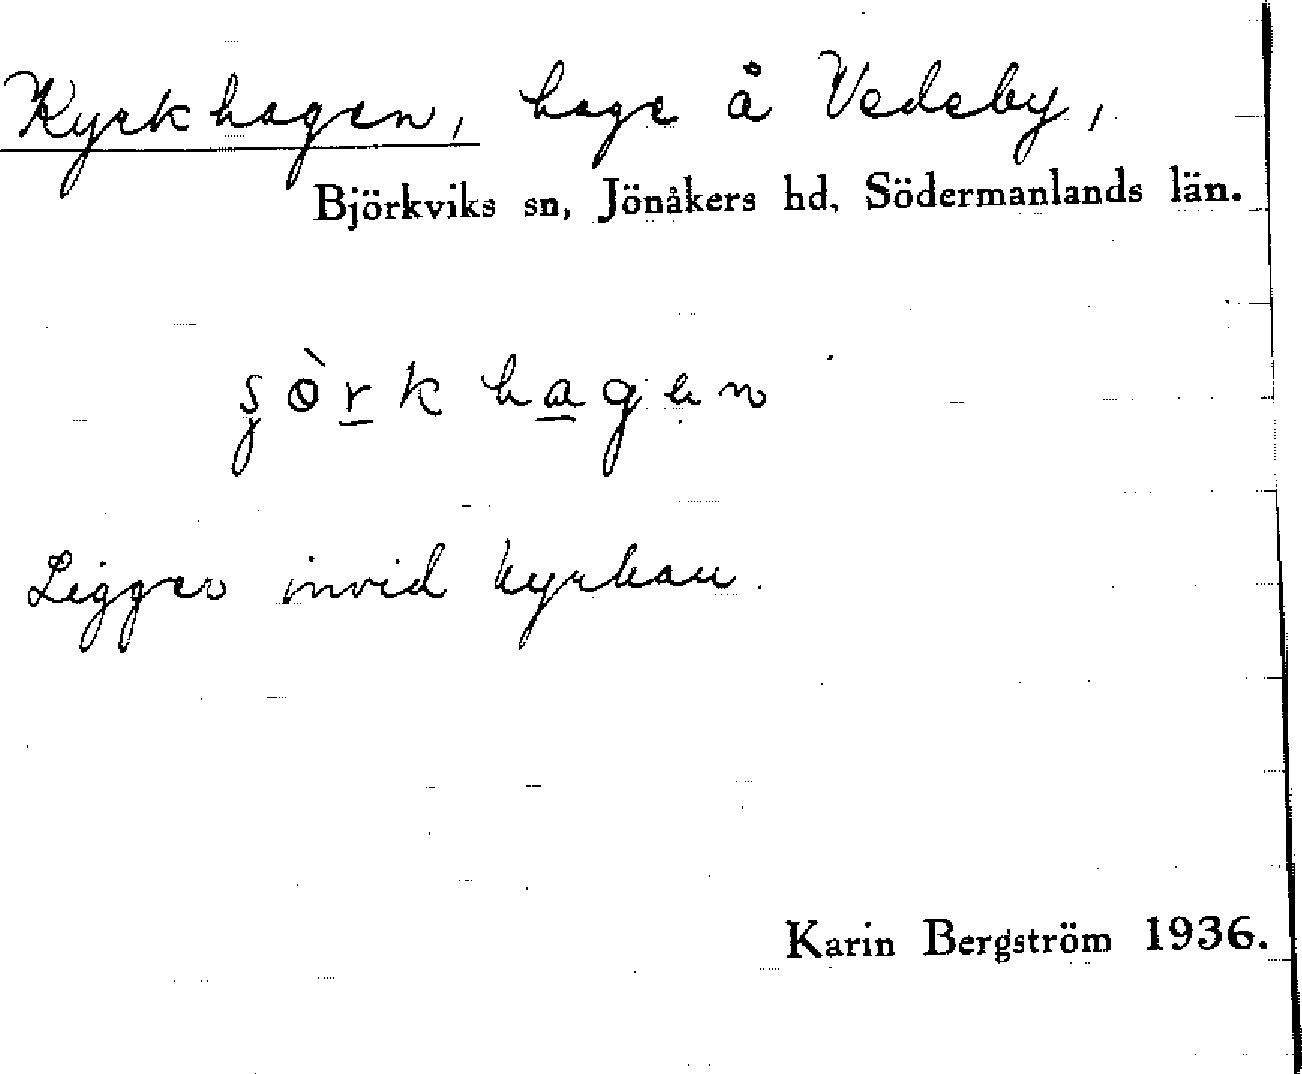 Kyrkhagen, hage å Vedeby,
Björkviks sn, Jönåkers hd, Södermanlands län.
ʂɵ̀rk hagen
Ligger invid kyrkan.
Karin Bergström 1936.